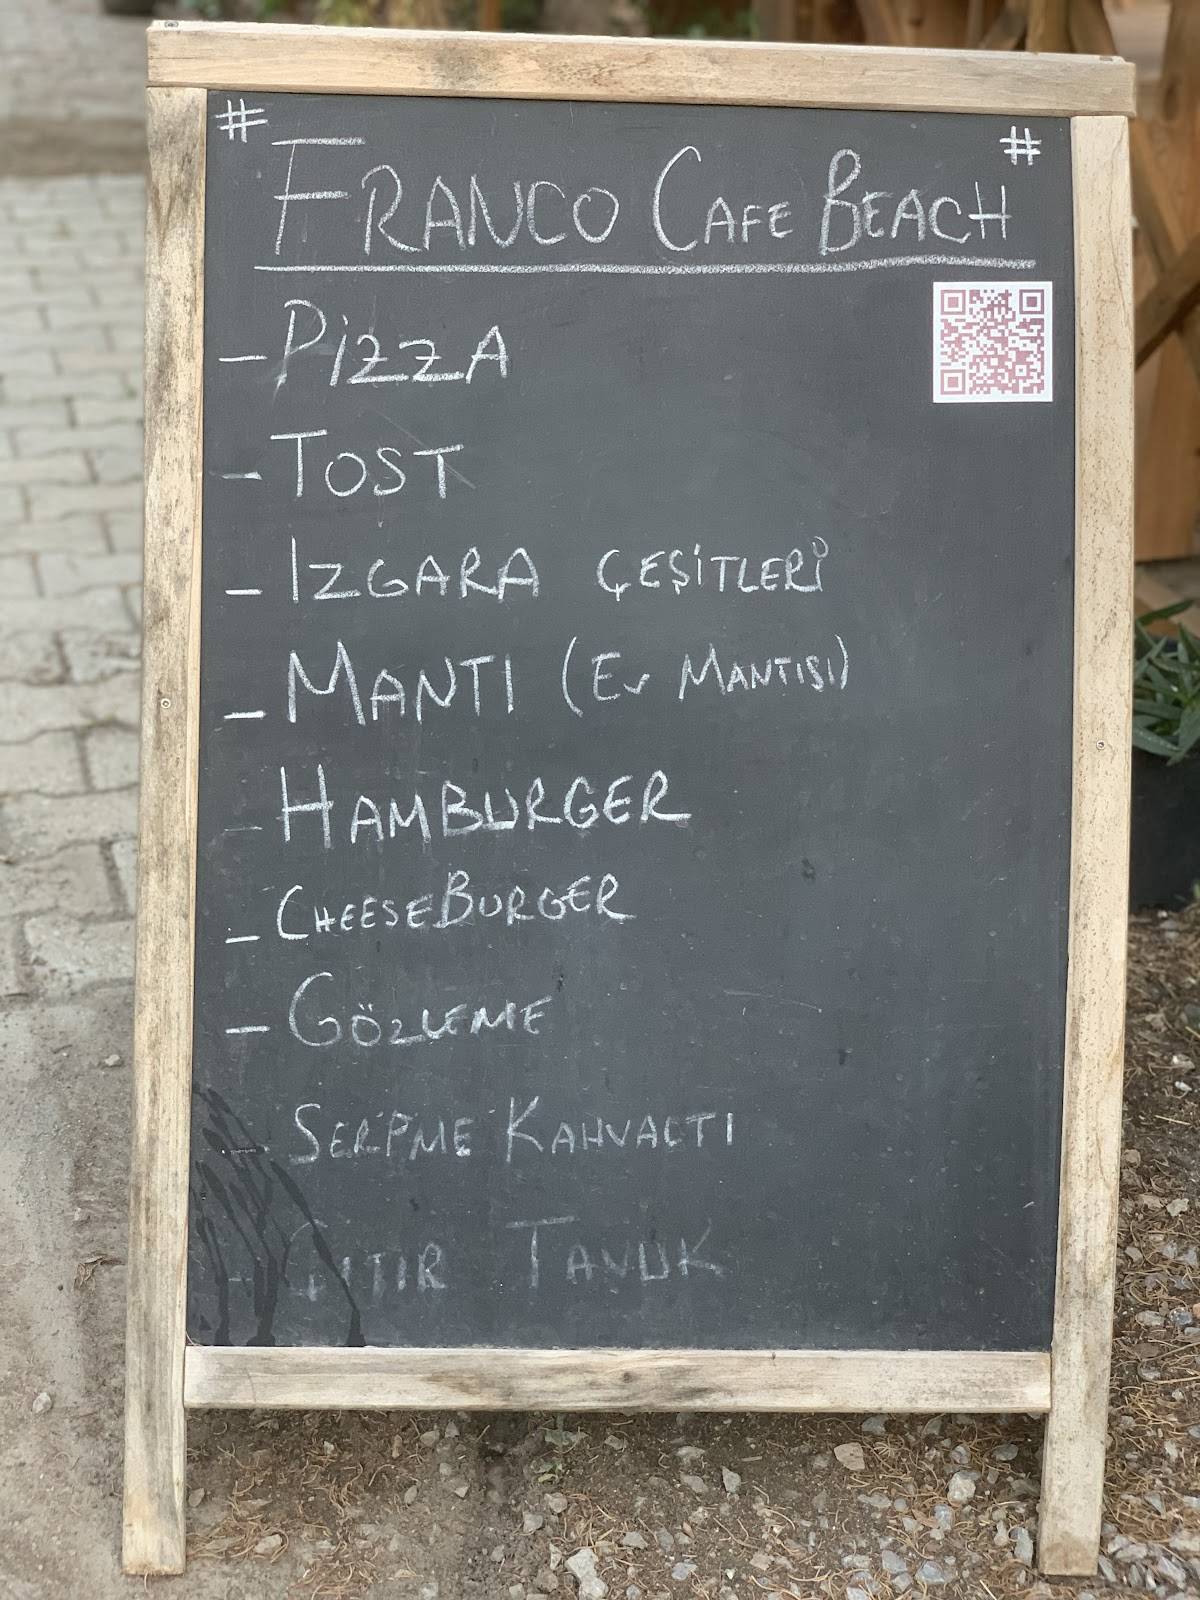 # FRANCO CAFE BEACH #
- PIZZA
- TOST
- IZGARA ÇEŞİTLERİ
- MANTI (EV MANTISI)
- HAMBURGER
- CHEESEBURGER
- GÖZLEME
- SERPME KAHVALTI
- ÇITIR TAVUK